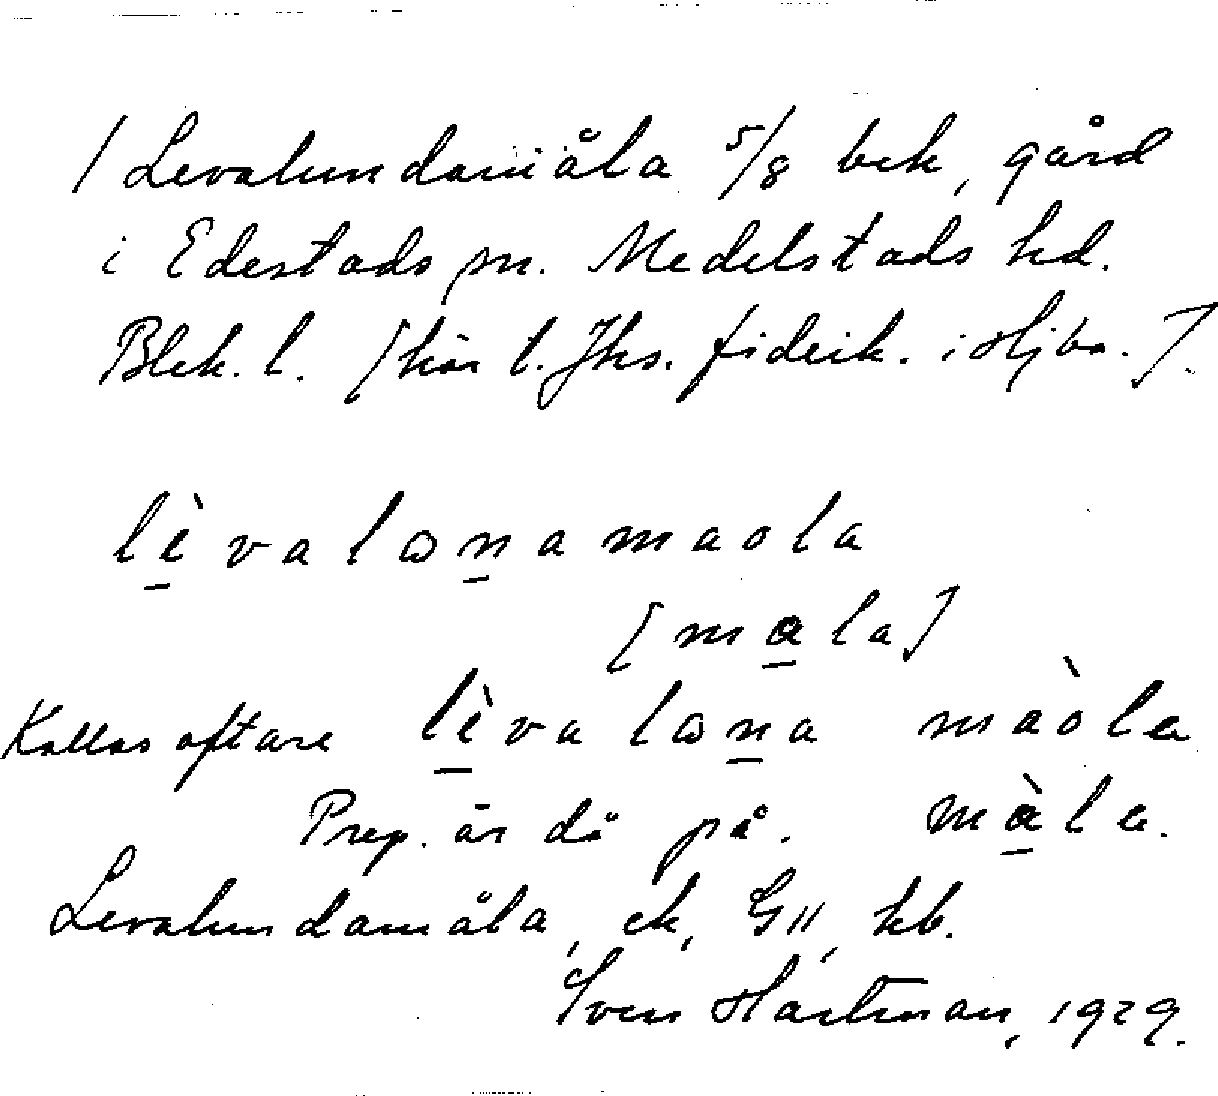 / Levalundamåla 5/8 bek, gård
i Edestads sn. Medelstads hd.
Blek. l. [hör t. Jhs. fideik. i Hjba.].
lèvalωnamaola
[mala]
Kallas oftare lèvalωna màola
Prep. är då på. màla.
Levalundamåla, ek, GII, kb.
Sven Hartman, 1929.